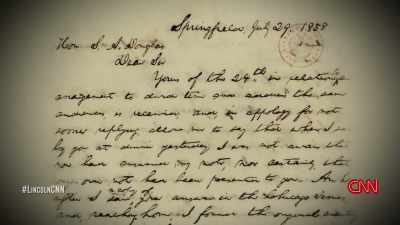 Springfield, July 29. 1858
Hon. S. A. Douglas
Dear Sir
Yours of the 24th. in relation to
arrangement to divide time and address the same
audiences, is received; and, in appology for not
sooner replying, allow me to say that when I sat
by you at dinner yesterday I was not aware that
you had answered my note, nor certainly, that
my own note had been presented to you. An h
after I saw a copy of your answer in the Chicago Times;
and, reaching home, I found the original
#LINCOLNCNN
CNN